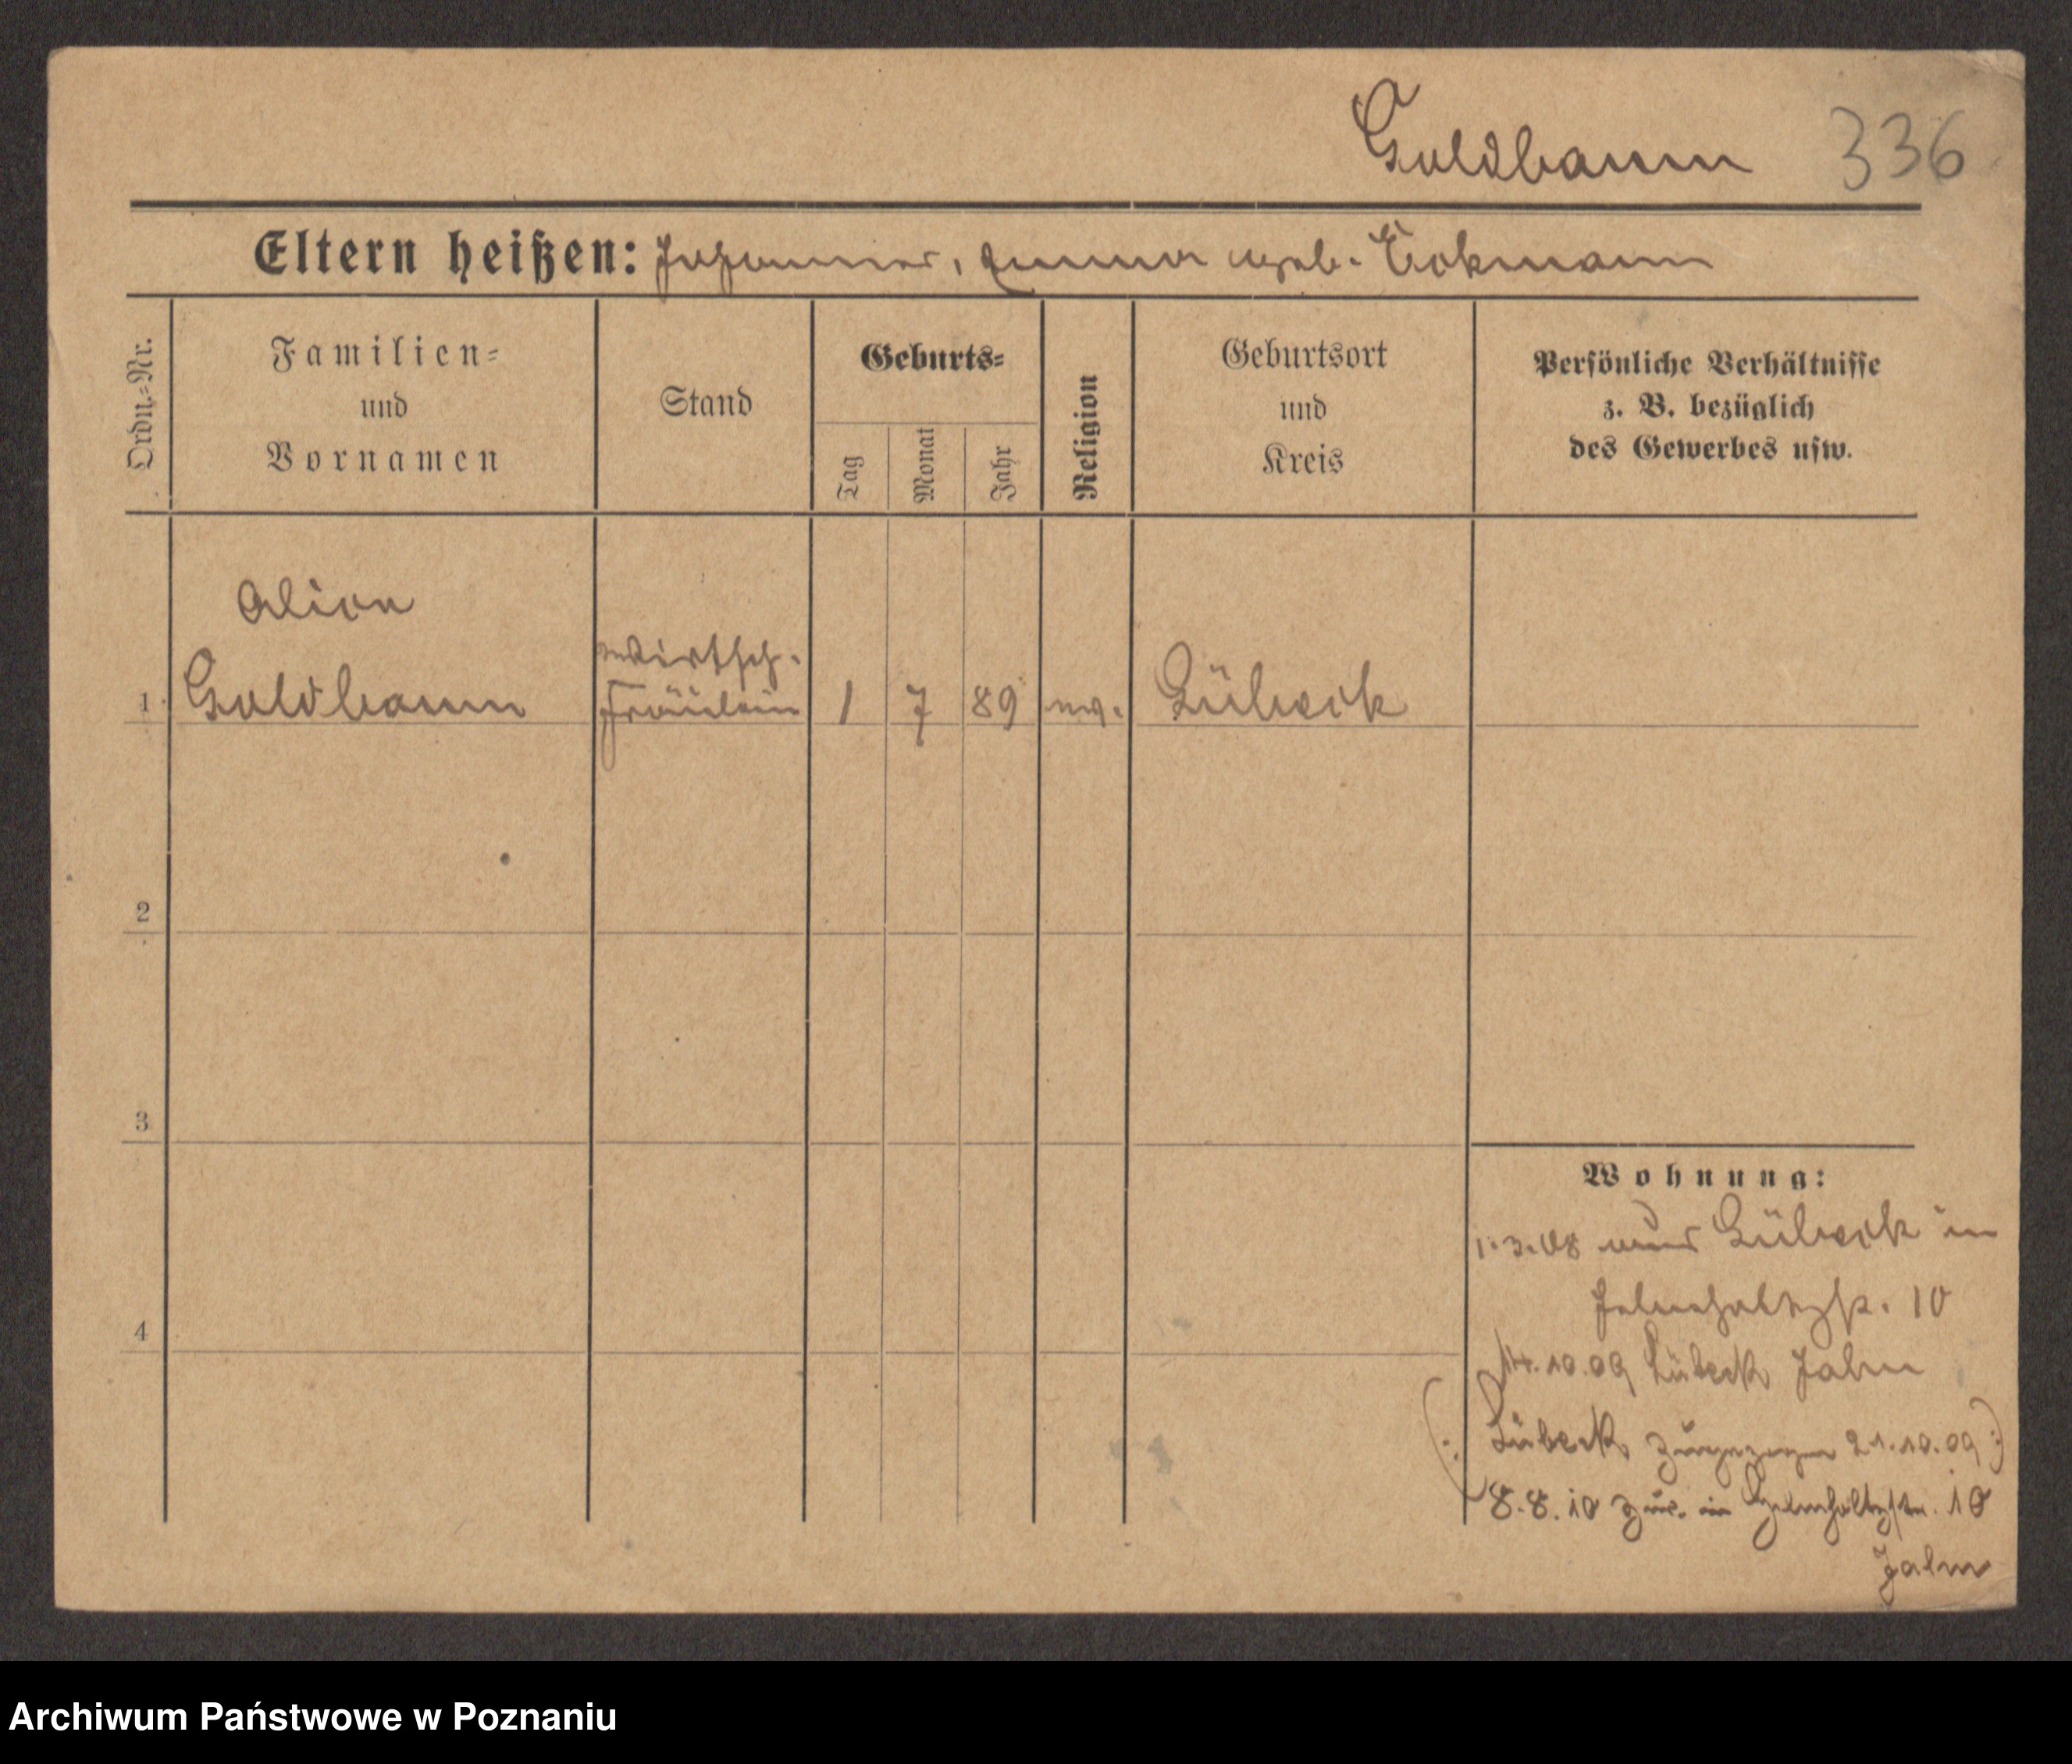 Goldbaum 336
Eltern heißen: Johannes, Emma geb. Eckmann
Ordn.=Nr.
Familien=
und
Vornamen
Stand
Geburts=
Tag
Monat
Jahr
Religion
Geburtsort
und
Kreis
Persönliche Verhältnisse
z. B. bezüglich
des Gewerbes usw.
1
Alice
Goldbaum
Wirtsch.
Fräulein
1 7 89 ev. Lübeck
2
3
4
Wohnung:
1.3.08 aus Lübeck in
Helmholtzstr. 10
14.10.09 Lübeck
(: Lübeck zugezogen 21.10.09 :)
8.8.10 zur. in Helmholtzstr. 10
Archiwum Państwowe w Poznaniu